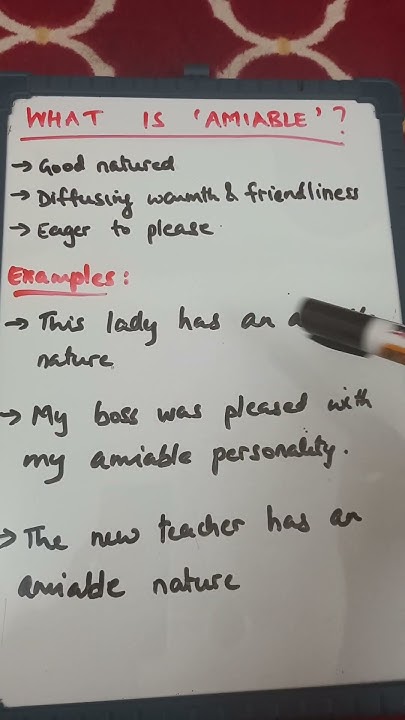 WHAT IS 'AMIABLE'?
→ Good natured
→ Diffusing warmth & friendliness
→ Eager to please
Examples:
→ This lady has an
nature.
→ My boss was pleased with
my amiable personality.
→ The new teacher has an
amiable nature